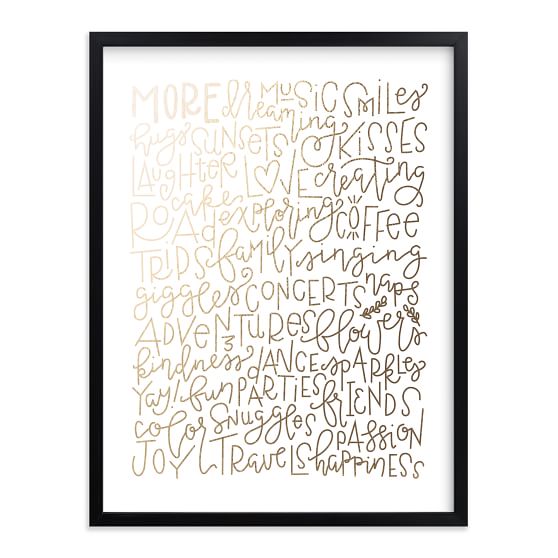 MORE dreaming MUSIC SMILES
hugs SUNSETS & KISSES
LAUGHTER LOVE creating
cake
ROAD exploring COFFEE
TRIPS family singing
giggles CONCERTS naps
ADVENTURES flowers
kindness DANCE SPARKLES
Yay! fun PARTIES FRIENDS
color SNUGGLES PASSION
JOY TRAVELS happiness